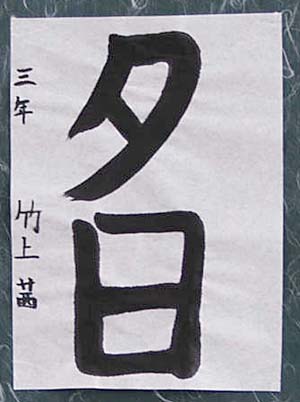 夕日
三年 竹上 茜